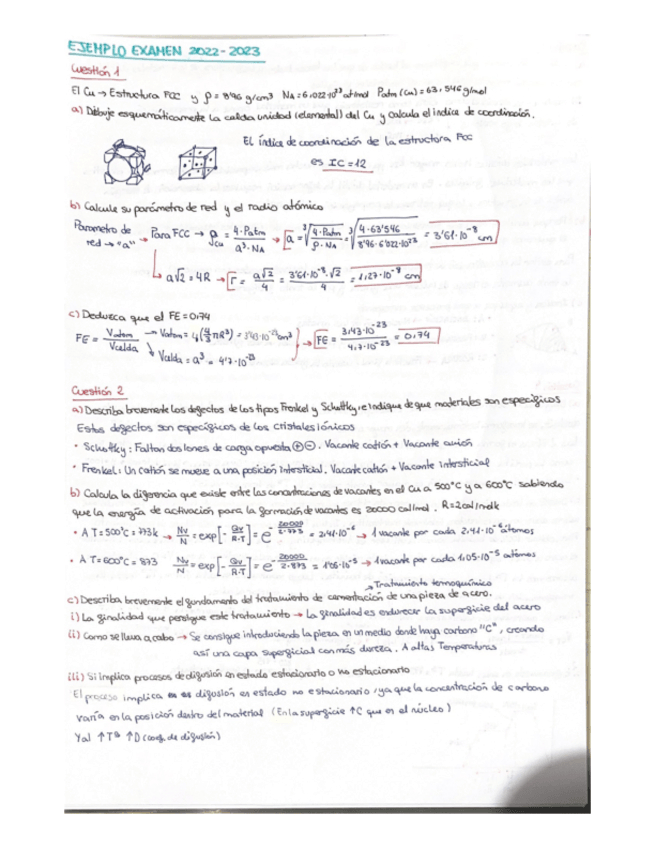 EJEMPLO EXAMEN 2022-2023
Cuestión 1
El Cu → Estructura FCC y ρ = 8'96 g/cm³ NA = 6,022·10²³ at/mol Patm (Cu) = 63,546 g/mol
a) Dibuje esquemáticamente la celda unidad (elemental) del Cu y calcula el índice de coordinación.
El índice de coordinación de la estructura FCC
es IC = 12
b) Calcule su parámetro de red y el radio atómico
Parametro de red → "a" → Para FCC → ρCu = 4·Patm / a³·NA → a = ∛(4·Patm / ρ·NA) = ∛(4·63'546 / 8'96·6'022·10²³) = 3'61·10⁻⁸ cm
a√2 = 4R → r = a√2 / 4 = 3'61·10⁻⁸·√2 / 4 = 1,27·10⁻⁸ cm
c) Deduzca que el FE = 0,74
FE = Vatom / Vcelda → Vatom = 4(4/3 πR³) = 3'43·10⁻²³ cm³ → FE = 3,43·10⁻²³ / 4,7·10⁻²³ = 0,74
Vcelda = a³ = 4'7·10⁻²³
Cuestión 2
a) Describa brevemente los defectos de los tipos Frenkel y Schottky, e indique de que materiales son específicos
Estos defectos son específicos de los cristales iónicos
• Schottky: Faltan dos iones de carga opuesta ⊕⊖. Vacante catión + Vacante anión
• Frenkel: Un catión se mueve a una posición intersticial. Vacante catión + Vacante intersticial
b) Calcula la diferencia que existe entre las concentraciones de vacantes en el Cu a 500°C y a 600°C sabiendo
que la energía de activación para la formación de vacantes es 20000 cal/mol. R = 2cal/molk
• A T = 500°C = 773k → Nv/N = exp[- Qv/R·T] = e^(- 20000/2·773) = 2,41·10⁻⁶ → 1 vacante por cada 2,41·10⁻⁶ átomos
• A T = 600°C = 873 Nv/N = exp[- Qv/R·T] = e^(- 20000/2·873) = 1'05·10⁻⁵ → 1 vacante por cada 1,05·10⁻⁵ átomos
→ Tratamiento termoquímico
c) Describa brevemente el fundamento del tratamiento de cementación de una pieza de acero.
i) La finalidad que persigue este tratamiento → La finalidad es endurecer la superficie del acero
(ii) Como se lleva a cabo → Se consigue introduciendo la pieza en un medio donde haya carbono "C", creando
así una capa superficial con más dureza. A altas Temperaturas
(iii) Si implica procesos de difusión en estado estacionario o no estacionario
El proceso implica difusión en estado no estacionario, ya que la concentración de carbono
varía en la posición dentro del material (En la superficie ↑C que en el núcleo)
Y al ↑Tª ↑D (coef. de difusión)